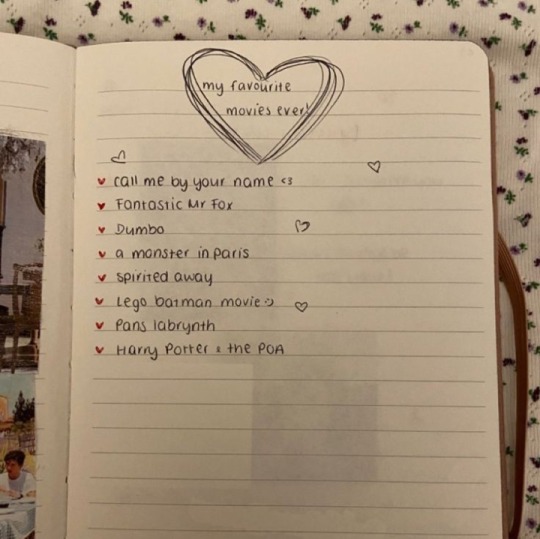 my favourite
movies ever!
call me by your name <3
Fantastic Mr Fox
Dumbo
a monster in paris
spirited away
Lego batman movie :)
Pans labrynth
Harry Potter & the POA